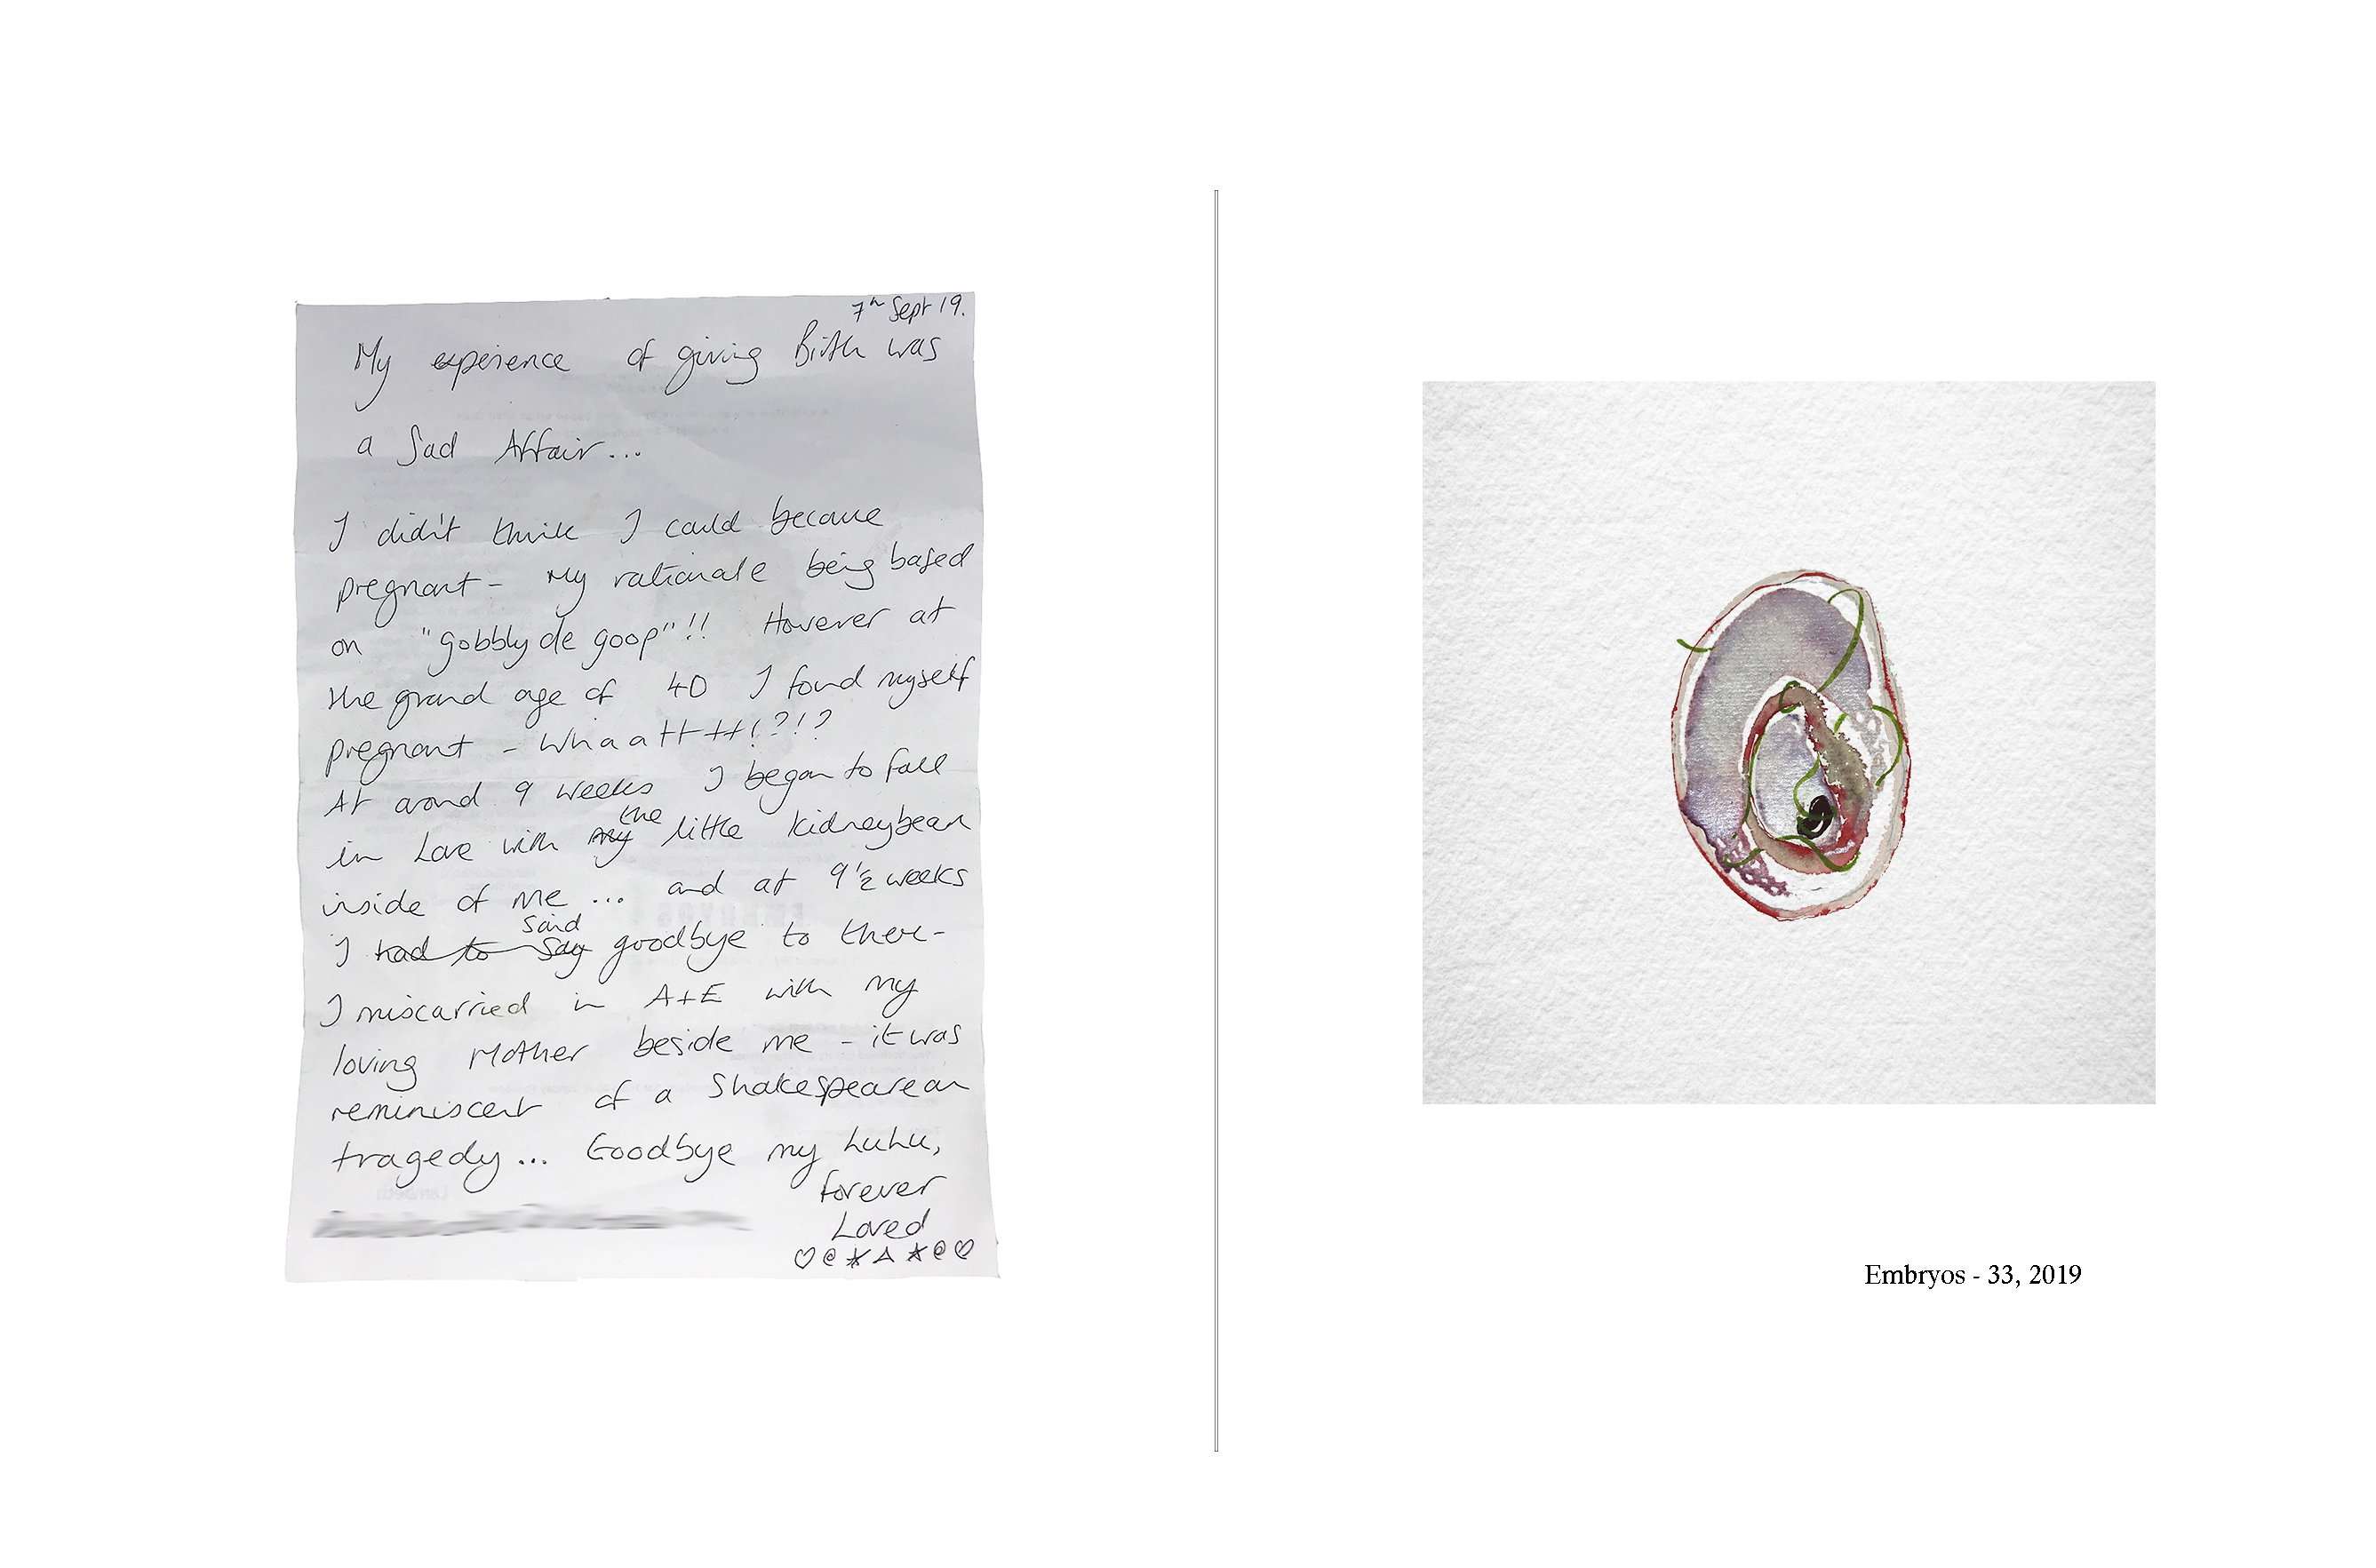 7th Sept 19.
My experience of giving Birth was
a Sad Affair...
I didn't think I could become
pregnant - My rationale being based
on "gobbly de goop"!! However at
the grand age of 40 I found myself
pregnant - Whaatttt!?!?
At around 9 weeks I began to fall
in Love with my the little kidneybean
inside of me ... and at 9½ weeks
I had to say said goodbye to them -
I miscarried in A+E with my
loving Mother beside me - it was
reminiscent of a Shakespearean
tragedy... Goodbye my LuLu,
forever
Loved
Embryos - 33, 2019